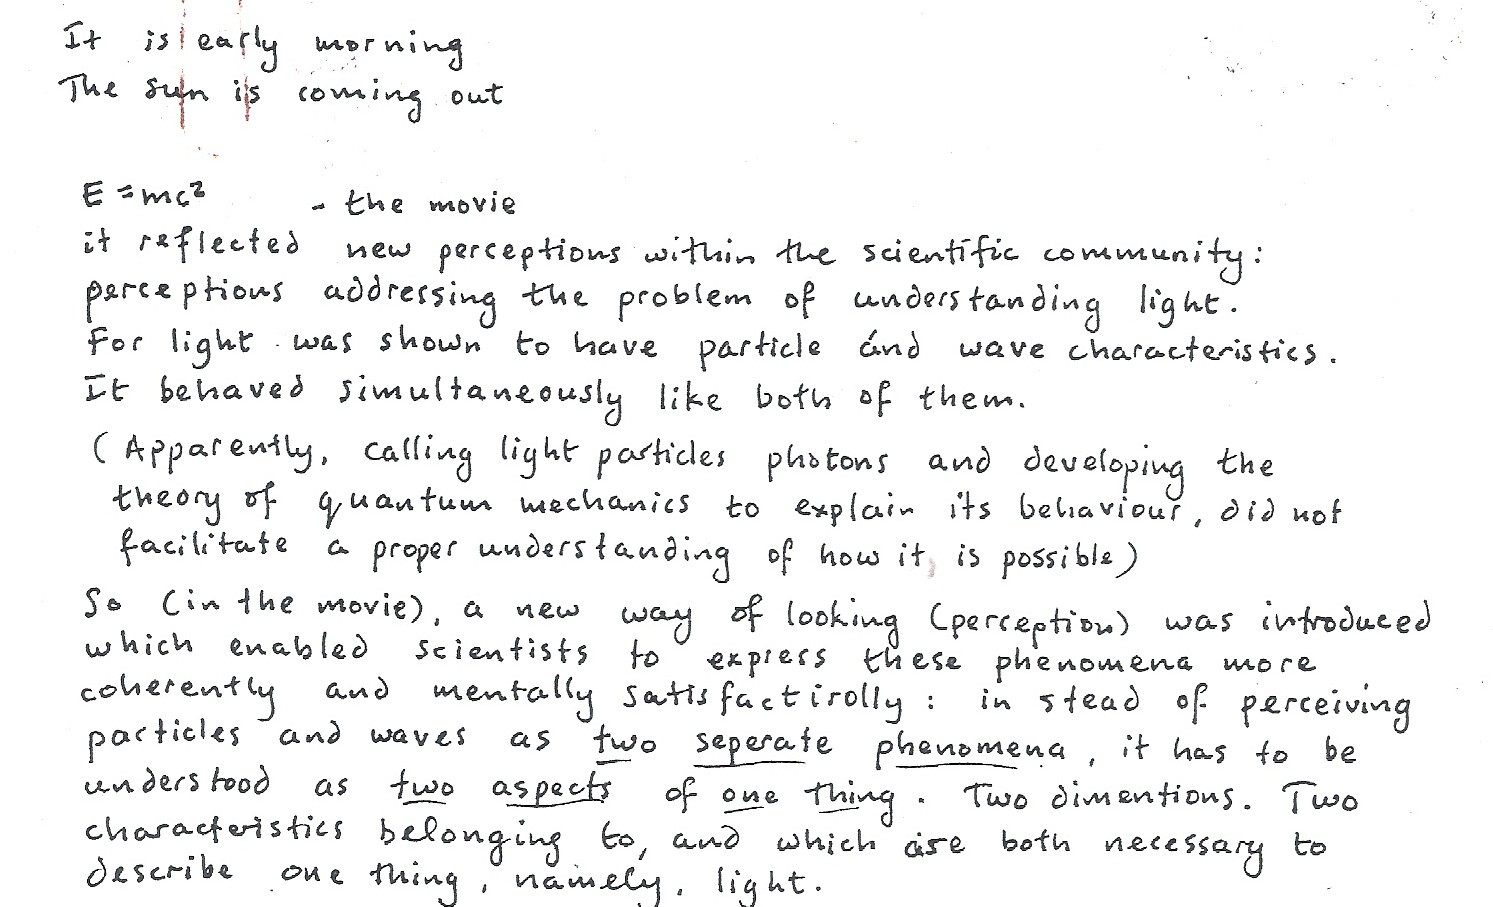 It is early morning
The sun is coming out
E = mc² - the movie
it reflected new perceptions within the scientific community:
perceptions addressing the problem of understanding light.
For light was shown to have particle ánd wave characteristics.
It behaved simultaneously like both of them.
(Apparently, calling light particles photons and developing the
theory of quantum mechanics to explain its behaviour, did not
facilitate a proper understanding of how it is possible)
So (in the movie), a new way of looking (perception) was introduced
which enabled scientists to express these phenomena more
coherently and mentally satisfactirolly: in stead of perceiving
particles and waves as two seperate phenomena, it has to be
understood as two aspects of one thing. Two dimentions. Two
characteristics belonging to, and which are both necessary to
describe one thing, namely, light.